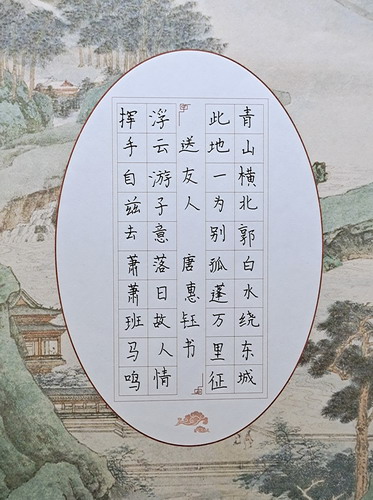 青山横北郭白水绕东城
此地一为别孤蓬万里征
送友人 唐惠钰书
浮云游子意落日故人情
挥手自兹去萧萧班马鸣